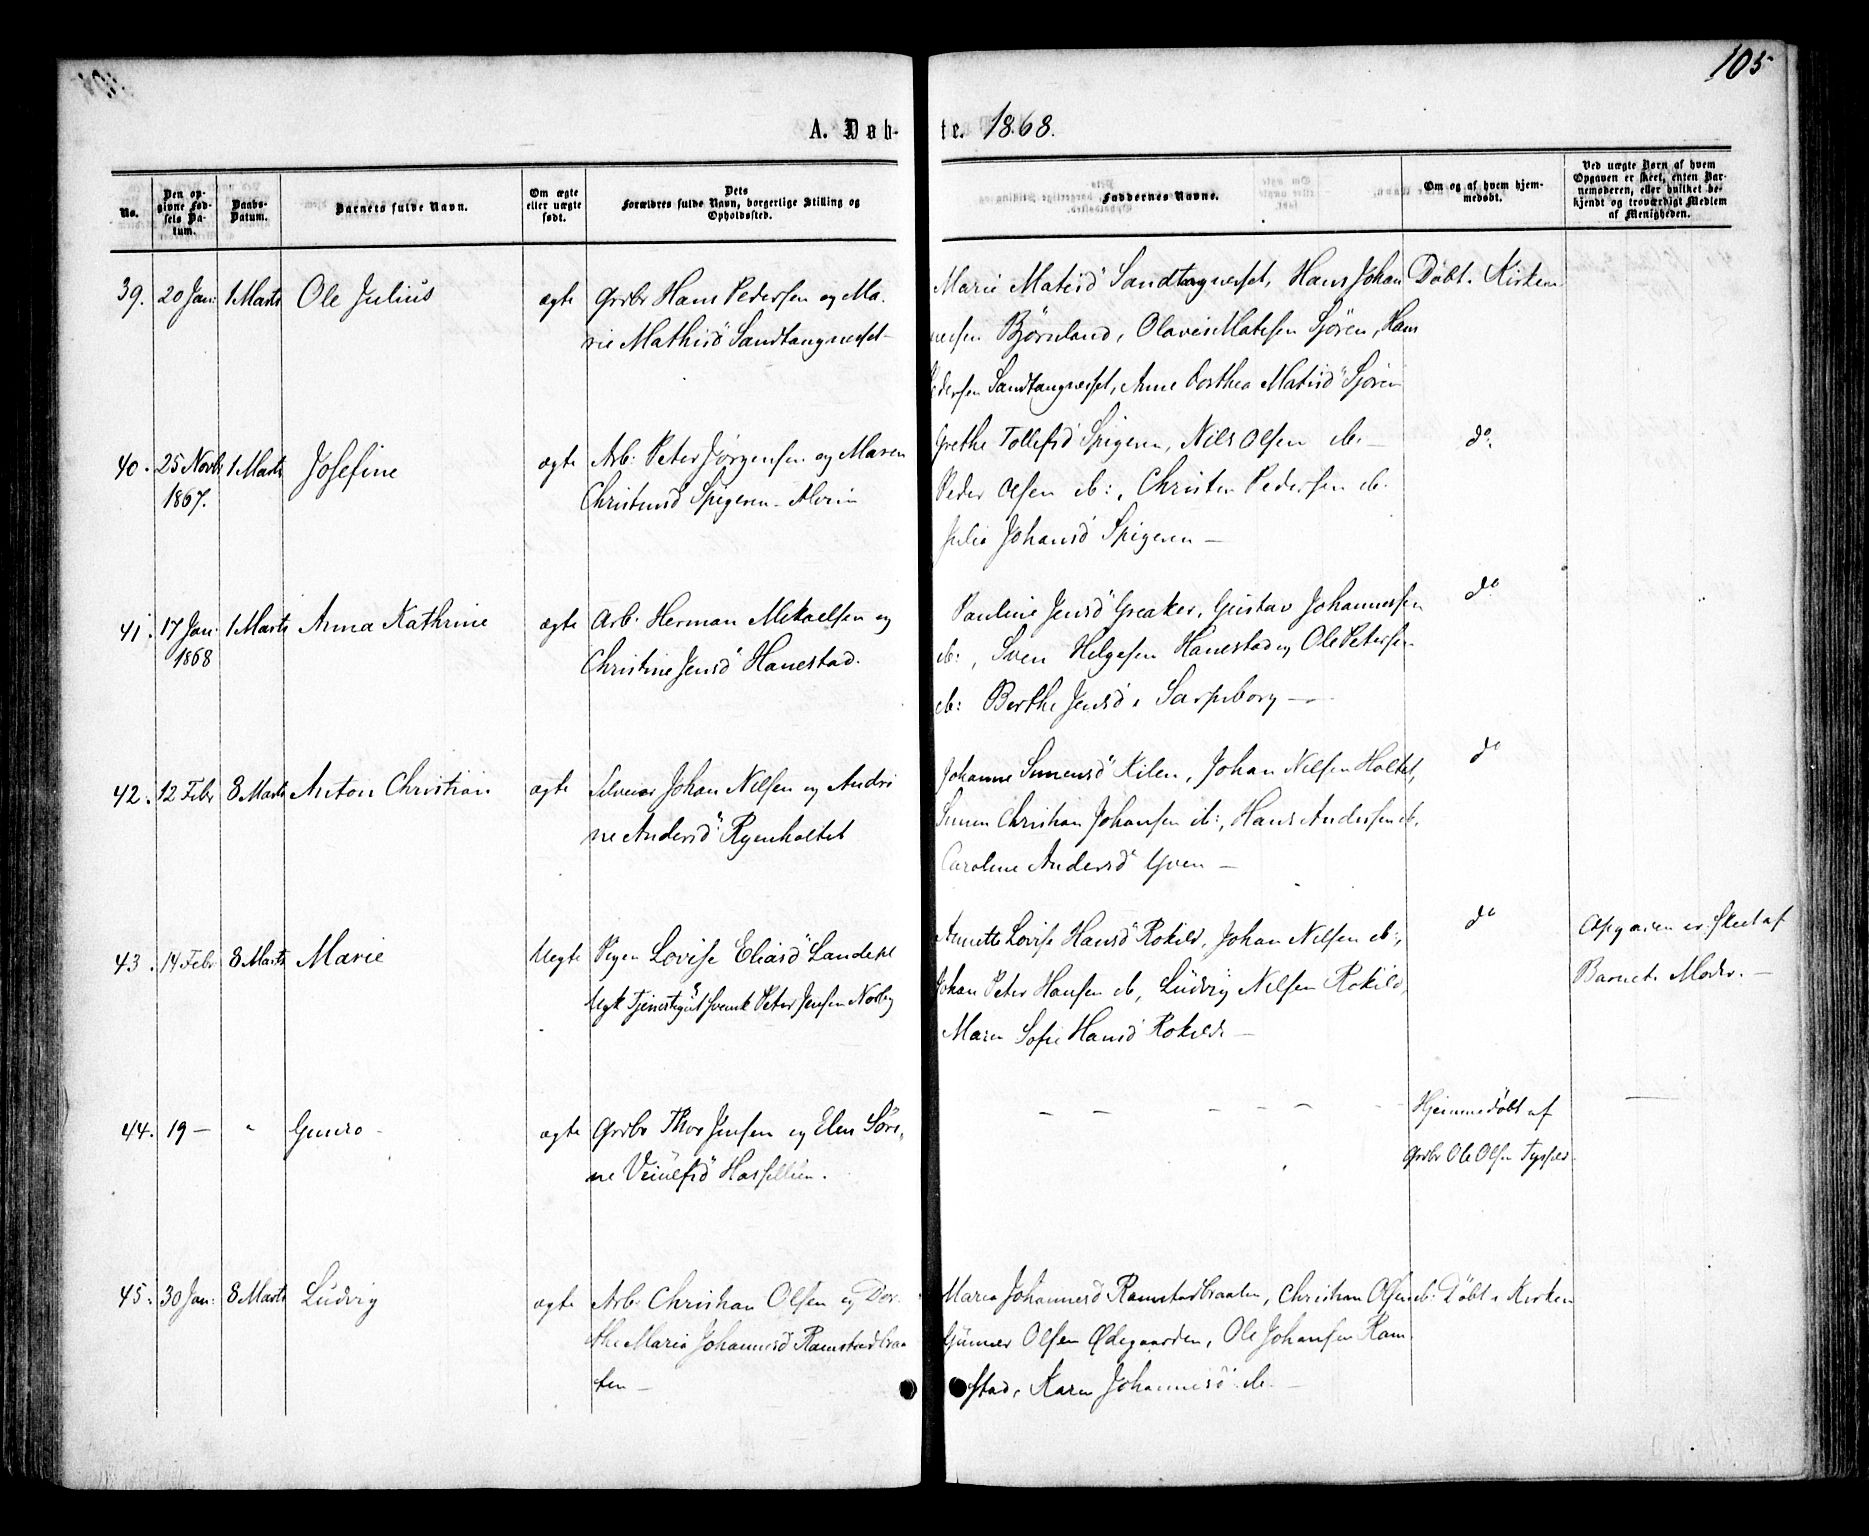 105
A. Døb-
te. 1868.
No.
Den op-
givne Fød-
sels Da-
tum.
Daabs-
Datum.
Barnets fulde Navn.
Om ægte
eller uægte
født.
Dets
Forældres fulde Navn, borgerlige Stilling og
Opholdssted.
Faddernes Navne.
Om og af hvem hjem-
medøbt.
Ved uægte Børn af hvem
Opgaven er skeet, enten Bar-
nemoderen, eller hvilket be-
kjendt og troværdigt Medlem
af Menigheden.
39. 20 Jan: 1 Marts Ole Julius ægte Grdbr Hans Pedersen og Ma-
rie Mathisd Sandtangnesset
Marie Matisd Sandtangnesset, Hans Johan
nesen Bjørnland, Olavis Matisen Sjøren, Hans
Pedersen Sandtangnesset, Anne Dorthea Matisd Sjøren
Døbt i Kirken
40. 25 Novbr 1 Marts Josefine ægte Arb: Peter Jørgensen og Maren
1867. Christensd Spigeren
Grethe Tollefsd Spigeren, Nils Olsen ib.
Peder Olsen ib:, Christen Pedersen ib.
Julie Johansd Spigeren
do.
41. 17 Jan: 1 Marts Anna Kathrine ægte Arb. Herman Mikaelsen og
1868 Christine Jensd Hanestad.
Pauline Jensd Greaker, Gustav Johannessen
ib:, Sven Helgesen Hanestad og Ole Petersen
ib: Berthe Jensd i Sarpsborg
do
42. 12 Febr 8 Marts Anton Christian ægte Selveier Johan Nilsen og Andri
ne Andersd Ryenholtet
Johanne Simensd Kilen, Johan Nilsen Holtet,
Simen Christian Johansen ib:, Hans Andersen ib.
Caroline Andersd Yven
do
43. 14 Febr 8 Marts Marie Uegte Pigen Lovise Eliasd Landeht
Ugk Tjenestegut svensk Peter Jensen Norby
Annette Lovise Hansd Rokild, Johan Nilsen ib:,
Johan Peter Hansen ib, Ludvig Nilsen Rokild
Maren Sofie Hansd Rokild
do
Opgaven er skeet af
Barnets Moder.
44. 19 — " Gunro ægte Grdbr Thor Jensen og Elen Søri-
ne Veiulfsd
Hjemmedøbt af
Grdbr Ole Olsen
45. 30 Jan: 8 Marts Ludvig ægte Arb: Christian Olsen og Dor-
the Maria Johannesd Ramstadbraa
ten
Maria Johannesd Ramstadbraaten, Christian Olsen ib:
Gunner Olsen Ødegaarden, Ole Johansen Ram
stad, Karen Johannesd ib.
Døbt i Kirken